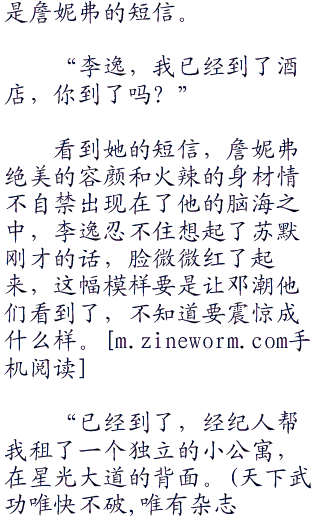 是詹妮弗的短信。
“李逸，我已经到了酒
店，你到了吗？”
看到她的短信，詹妮弗
绝美的容颜和火辣的身材情
不自禁出现在了他的脑海之
中，李逸忍不住想起了苏默
刚才的话，脸微微红了起
来，这幅模样要是让邓潮他
们看到了，不知道要震惊成
什么样。[m.zineworm.com手
机阅读]
“已经到了，经纪人帮
我租了一个独立的小公寓，
在星光大道的背面。(天下武
功唯快不破,唯有杂志